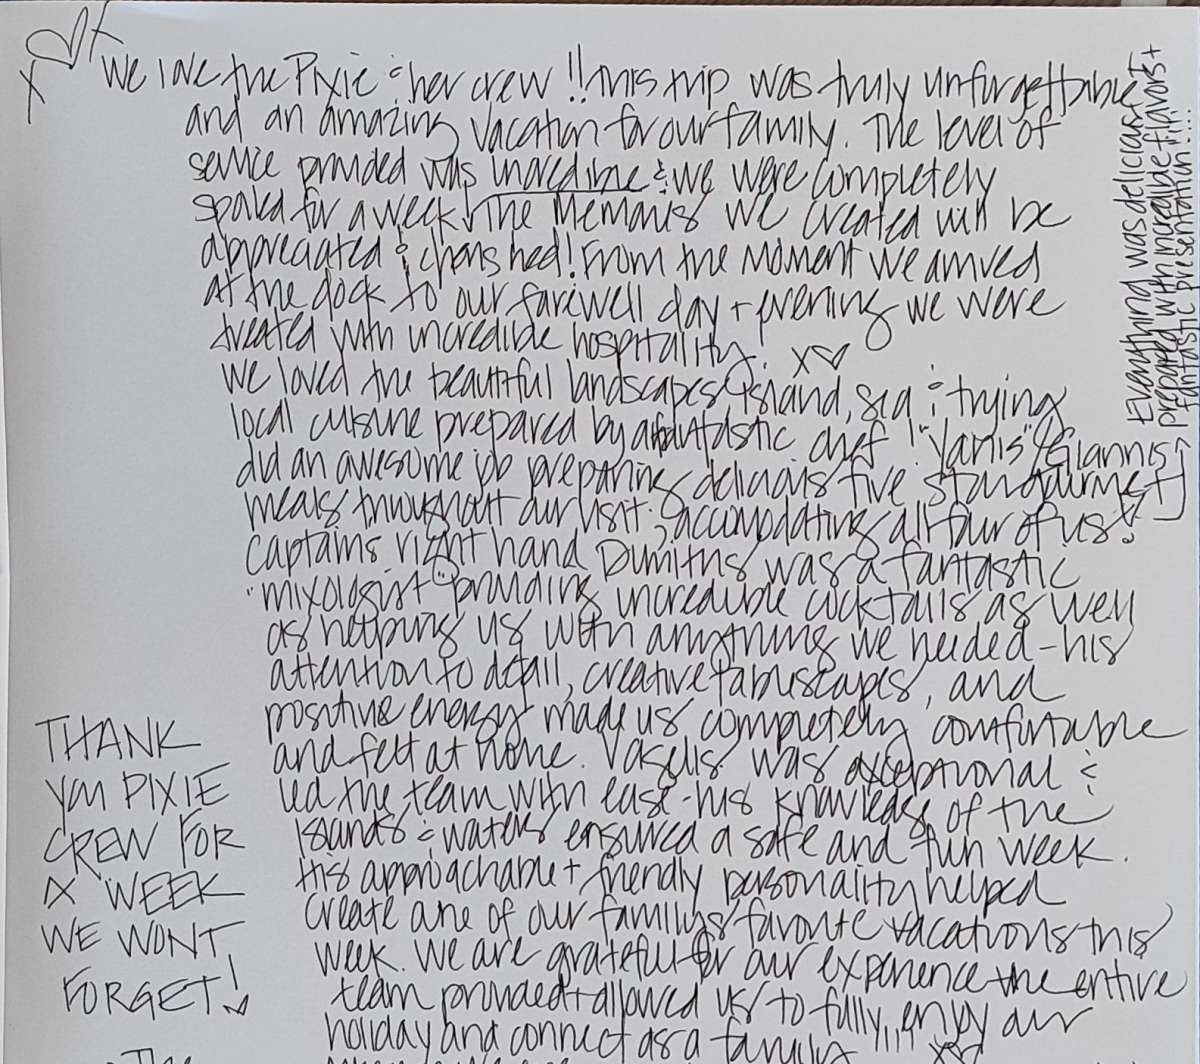 We love the Pixie & her crew!! this trip was truly unforgettable
and an amazing vacation for our family. The level of
service provided was incredible & we were completely
spoiled for a week! The memories we created will be
appreciated & cherished! From the moment we arrived
at the dock to our farewell day + evening we were
treated with incredible hospitality! X♡
We loved the beautiful landscapes, island, sea & trying
local cuisine prepared by a fantastic chef! "Yanis"/Giannis
did an awesome job preparing delicious five star gourmet
meals throughout our visit & accomodating all four of us!
Captains right hand Dimitris was a fantastic
mixologist providing incredible cocktails as well
as helping us with anything we needed - his
attention to detail, creative tablescapes, and
positive energy made us completely comfortable
and felt at home. Vasilis was exceptional &
led the team with ease - his knowledge of the
Islands & waters ensured a safe and fun week.
His approachable + friendly personality helped
create one of our family's favorite vacations this
week. We are grateful for our experience the entire
team provided + allowed us to fully enjoy our
holiday and connect as a family!!! X♡
Everything was delicious +
prepared with incredible flavors +
fantastic presentation!...
THANK
YOU PIXIE
CREW FOR
A WEEK
WE WONT
FORGET!
The